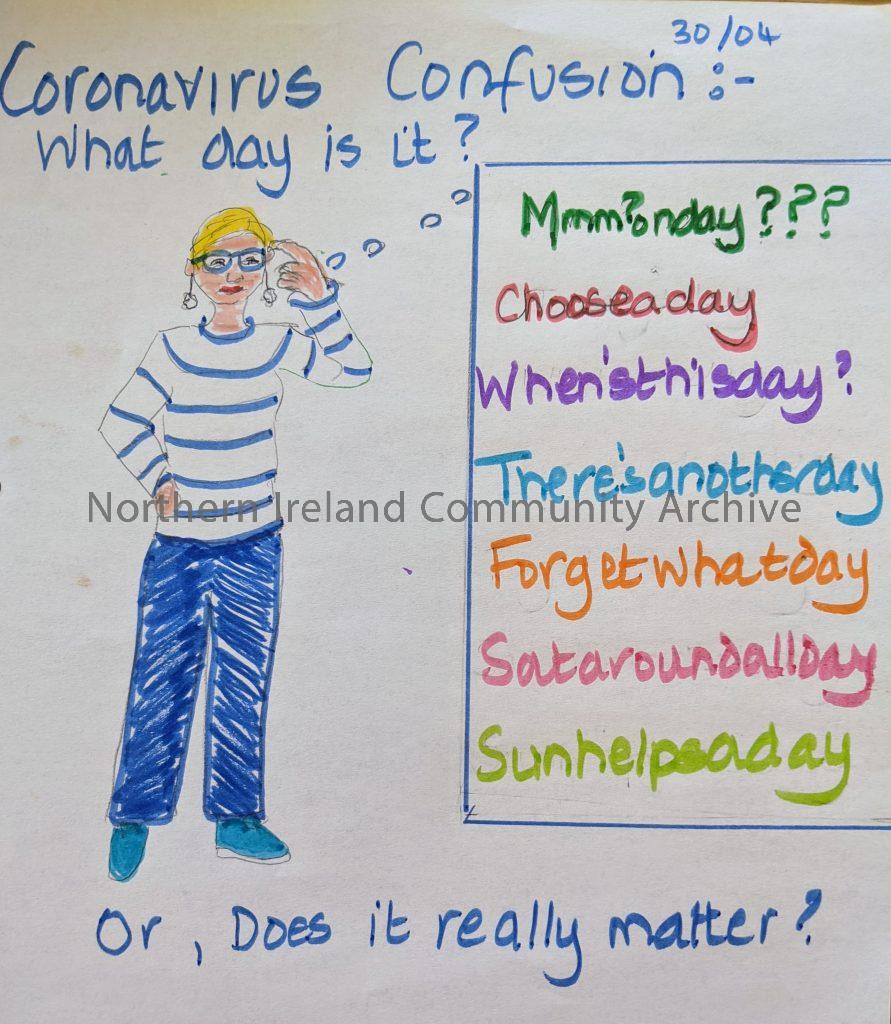 30/04
Coronavirus Confusion:-
What day is it?
Mmm?onday???
Chooseaday
When'sthisday?
There'sanotherday
Forgetwhatday
Sataroundallday
Sunhelpsaday
Northern Ireland Community Archive
Or, Does it really matter?